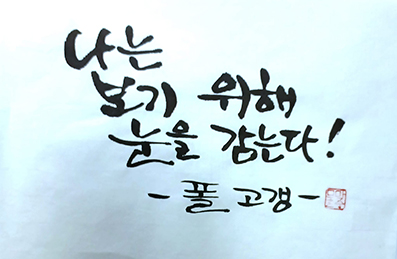 나는
보기 위해
눈을 감는다!
- 폴 고갱 -